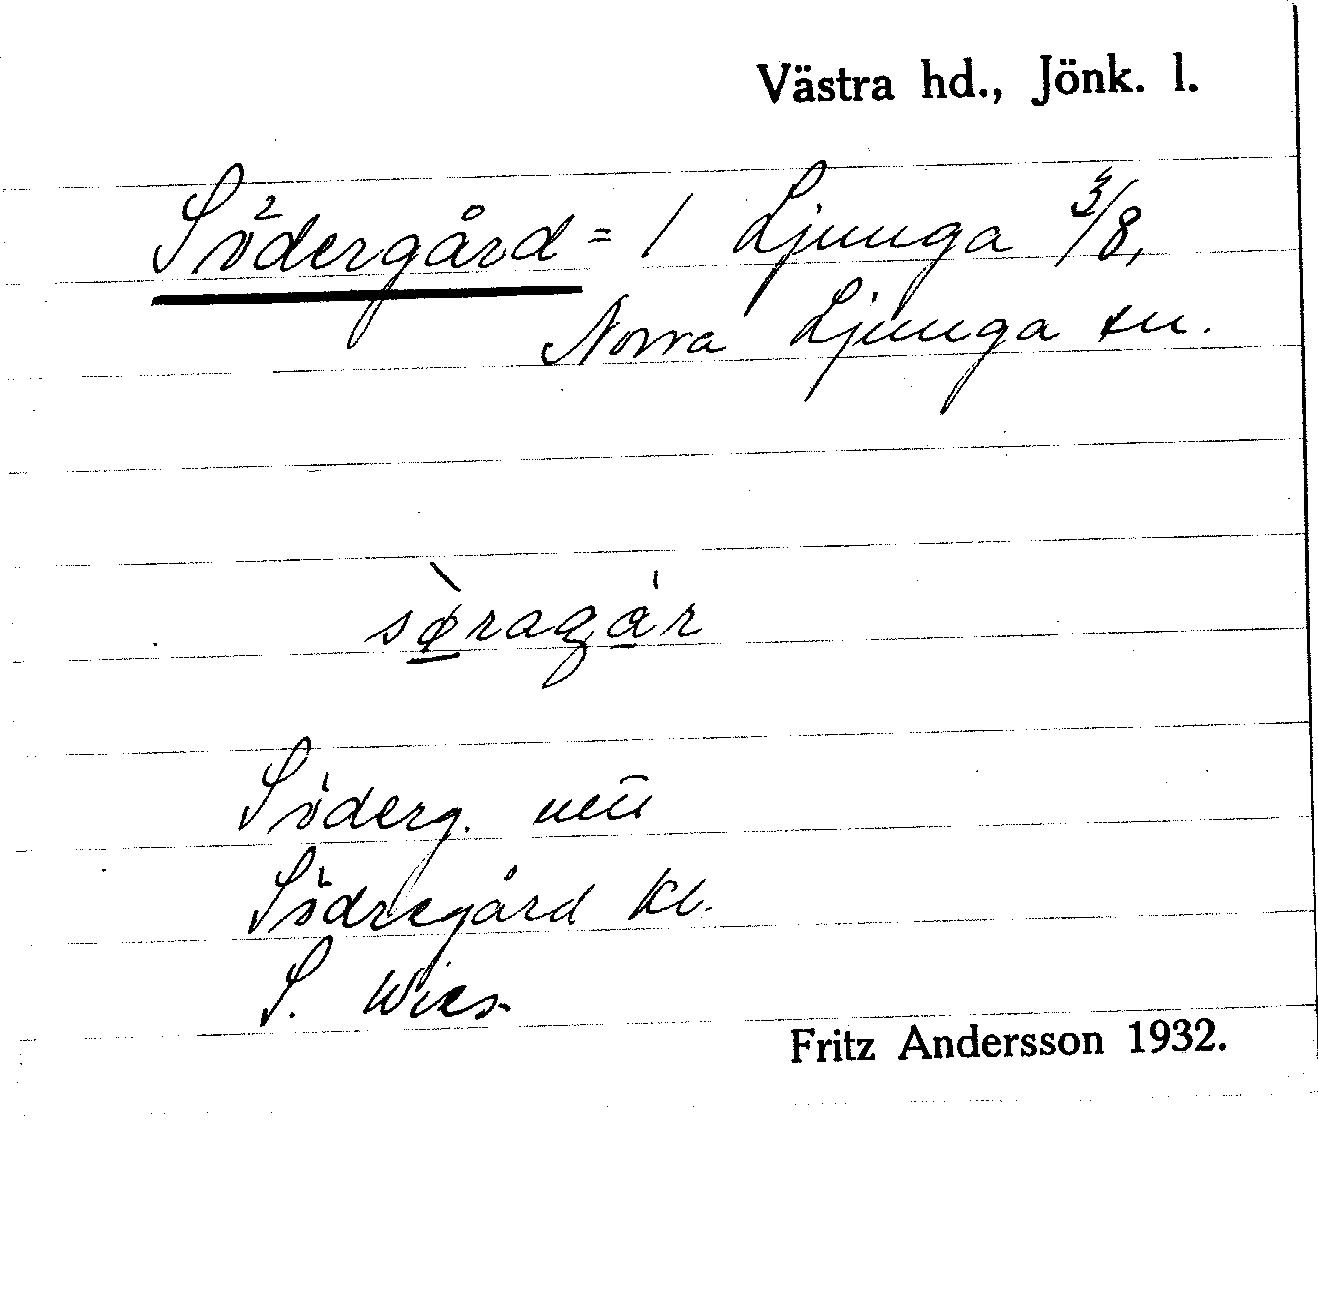 Västra hd., Jönk. l.
Södergård = 1 Ljunga 3/8,
Norra Ljunga sn.
sø̀ragár
Söderg.
Södregård Kb.
S. Wies
Fritz Andersson 1932.